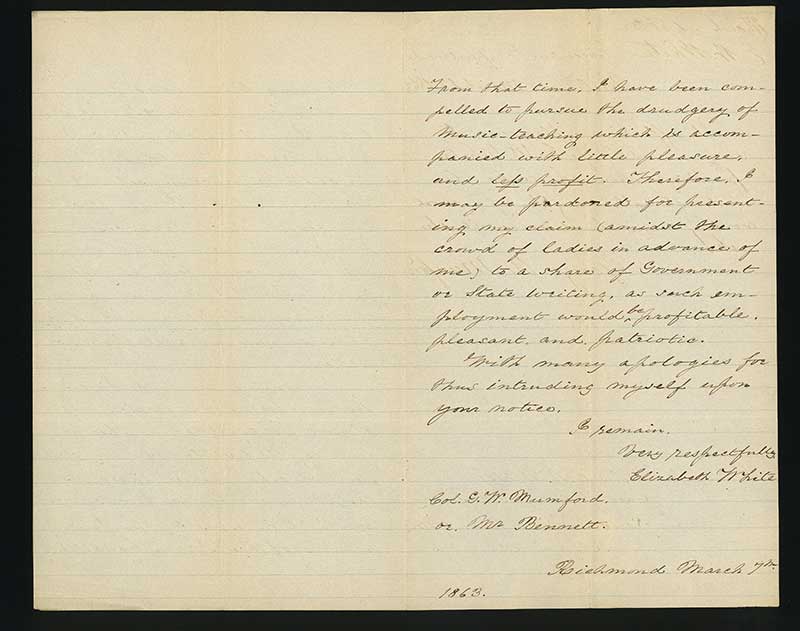 From that time, I have been com-
pelled to pursue the drudgery of
Music-teaching which is accom-
panied with little pleasure,
and less profit. Therefore, I
may be pardoned for present-
ing my claim (amidst the
crowd of ladies in advance of
me) to a share of Government
or State writing, as such em-
ployment would be profitable,
pleasant, and, patriotic.
With many apologies for
thus intruding myself upon
your notice,
I remain,
Very respectfully
Elizabeth White
Col. G. W. Mumford,
or, Mr Bennett.
Richmond March 7th
1863.